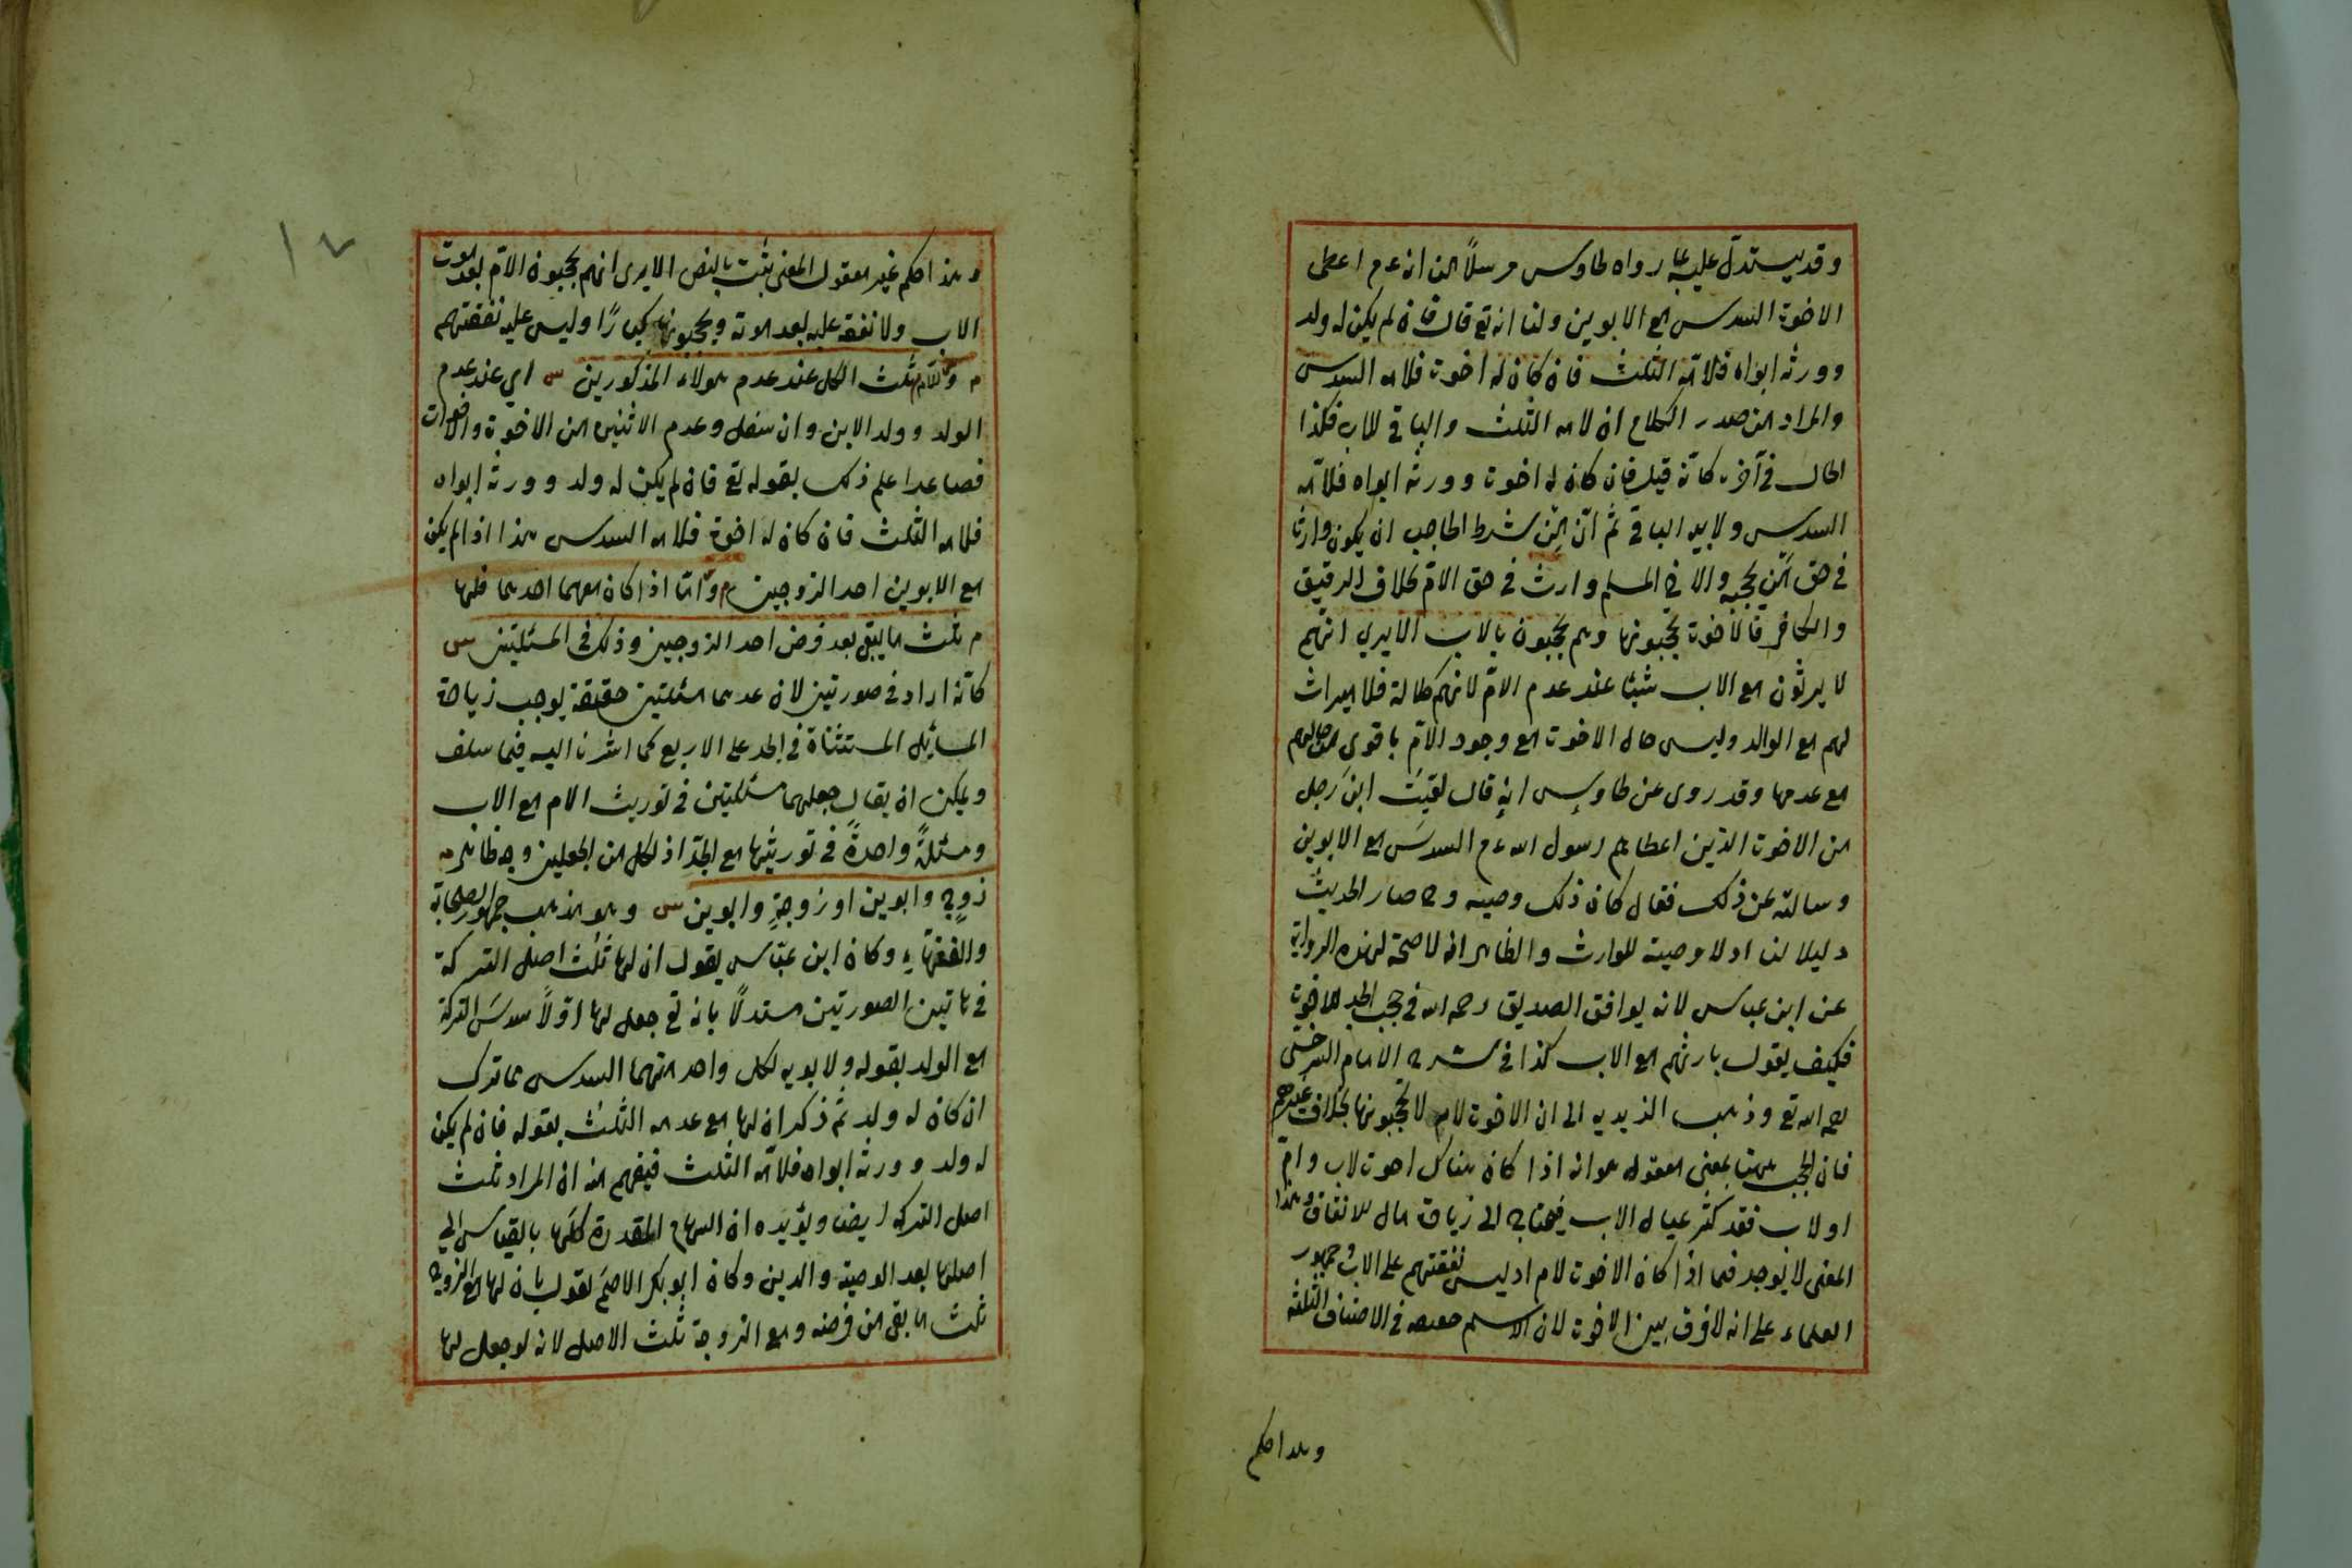 وقد يستدل عليه بما رواه طاوس مرسلاً من انه عم اعطى
الاخوة السدس مع الابوين ولنا انه تع قال فان لم يكن له ولد
وورثه ابواه فلامه الثلث فان كان له اخوة فلامه السدس
والمراد من صدر الكلام ان لامه الثلث والباقي للاب فكذا
الحال في آخره كانه قيل فان كان له اخوة وورثه ابواه فلامه
السدس ولابيه الباقي ثم ان من شرط الحاجب ان يكون وارثا
في حق من يحجبه والاخ المسلم وارث في حق الام بخلاف الرقيق
والكافر فالاخوة يحجبونها وهم يحجبون بالاب الا يري انهم
لا يرثون مع الاب شيئا عند عدم الام لانهم كلالة فلا ميراث
لهم مع الوالد وليس حال الاخوة مع وجود الام باقوى من حالهم
مع عدمها وقد روى عن طاوس انه قال لقيت ابن رجل
من الاخوة الذين اعطاهم رسول الله عم السدس مع الابوين
وسالته عن ذلك فقال كان ذلك وصية وح صار الحديث
دليلا لنا اد لا وصية للوارث والظاهر انه لا صحة لهذه الرواية
عن ابن عباس لانه يوافق الصديق رحمه الله في حجب الجد للاخوة
فكيف يقول بارثهم مع الاب كذا في شرح الامام السرخسي
رحمه الله تع وذهب الزيديه الى ان الاخوة لام لا يحجبونها بخلاف غيرهم
فان الحجب ههنا بمعنى معقول هو انه اذا كان هناك اخوة لاب وام
او لاب فقد كثر عيال الاب فيحتاج الى زيادة مال للانفاق وهذا
المعنى لا يوجد فيما اذا كان الاخوة لام اد ليس نفقتهم على الاب وجمهور
العلماء على انه لا فرق بين الاخوة لان الاسم حقيقة في الاصناف الثلثة
وهذا حكم
١٧
وهذا حكم غير معقول المعنى ثبت بالنص الا يرى انهم يحجبون الام بعد موت
الاب ولا نفقة عليه بعد موته ويحجبونها كبارًا وليس عليه نفقتهم
م وللام ثلث الكل عند عدم هولاء المذكورين س اي عند عدم
الولد وولد الابن وان سفل وعدم الاثنين من الاخوة والاخوات
فصاعدا علم ذلك بقوله تع فان لم يكن له ولد وورثه ابواه
فلامه الثلث فان كان له اخوة فلامه السدس هذا اذا لم يكن
مع الابوين احد الزوجين واما اذا كان معهما احدهما فلها
م ثلث ما يبقى بعد فرض احد الزوجين وذلك في المسئلتين س
كانه اراد في صورتين لان عدهما مسئلتين حقيقة يوجب زيادة
المسائل المستثناة في الجد على الاربع كما اشرنا اليه فيما سلف
ويمكن ان يقال جعلهما مسئلتين في توريث الام مع الاب
ومسئلةً واحدةً في توريثها مع الجد اذ لكل من الجعلين وجه ظاهر م
زوج وابوين او زوجةٍ وابوين س وهو مذهب جمهور الصحابة
والفقهاء وكان ابن عباس يقول ان لها ثلث اصل التركة
في هاتين الصورتين مستدلاً بانه تع جعل لها اولاً سدس التركة
مع الولد بقوله ولابويه لكل واحد منهما السدس مما ترك
ان كان له ولد ثم ذكر ان لها مع عدمه الثلث بقوله فان لم يكن
له ولد وورثه ابواه فلامه الثلث فيفهم منه ان المراد ثلث
اصل التركه ايضا ويؤيده ان السهام المقدرة كلها بالقياس الي
اصلها بعد الوصية والدين وكان ابو بكر الاصم يقول بان لها مع الزوج
ثلث ما بقى من فرضه ومع الزوجة ثلث الاصل لانه لو جعل لها